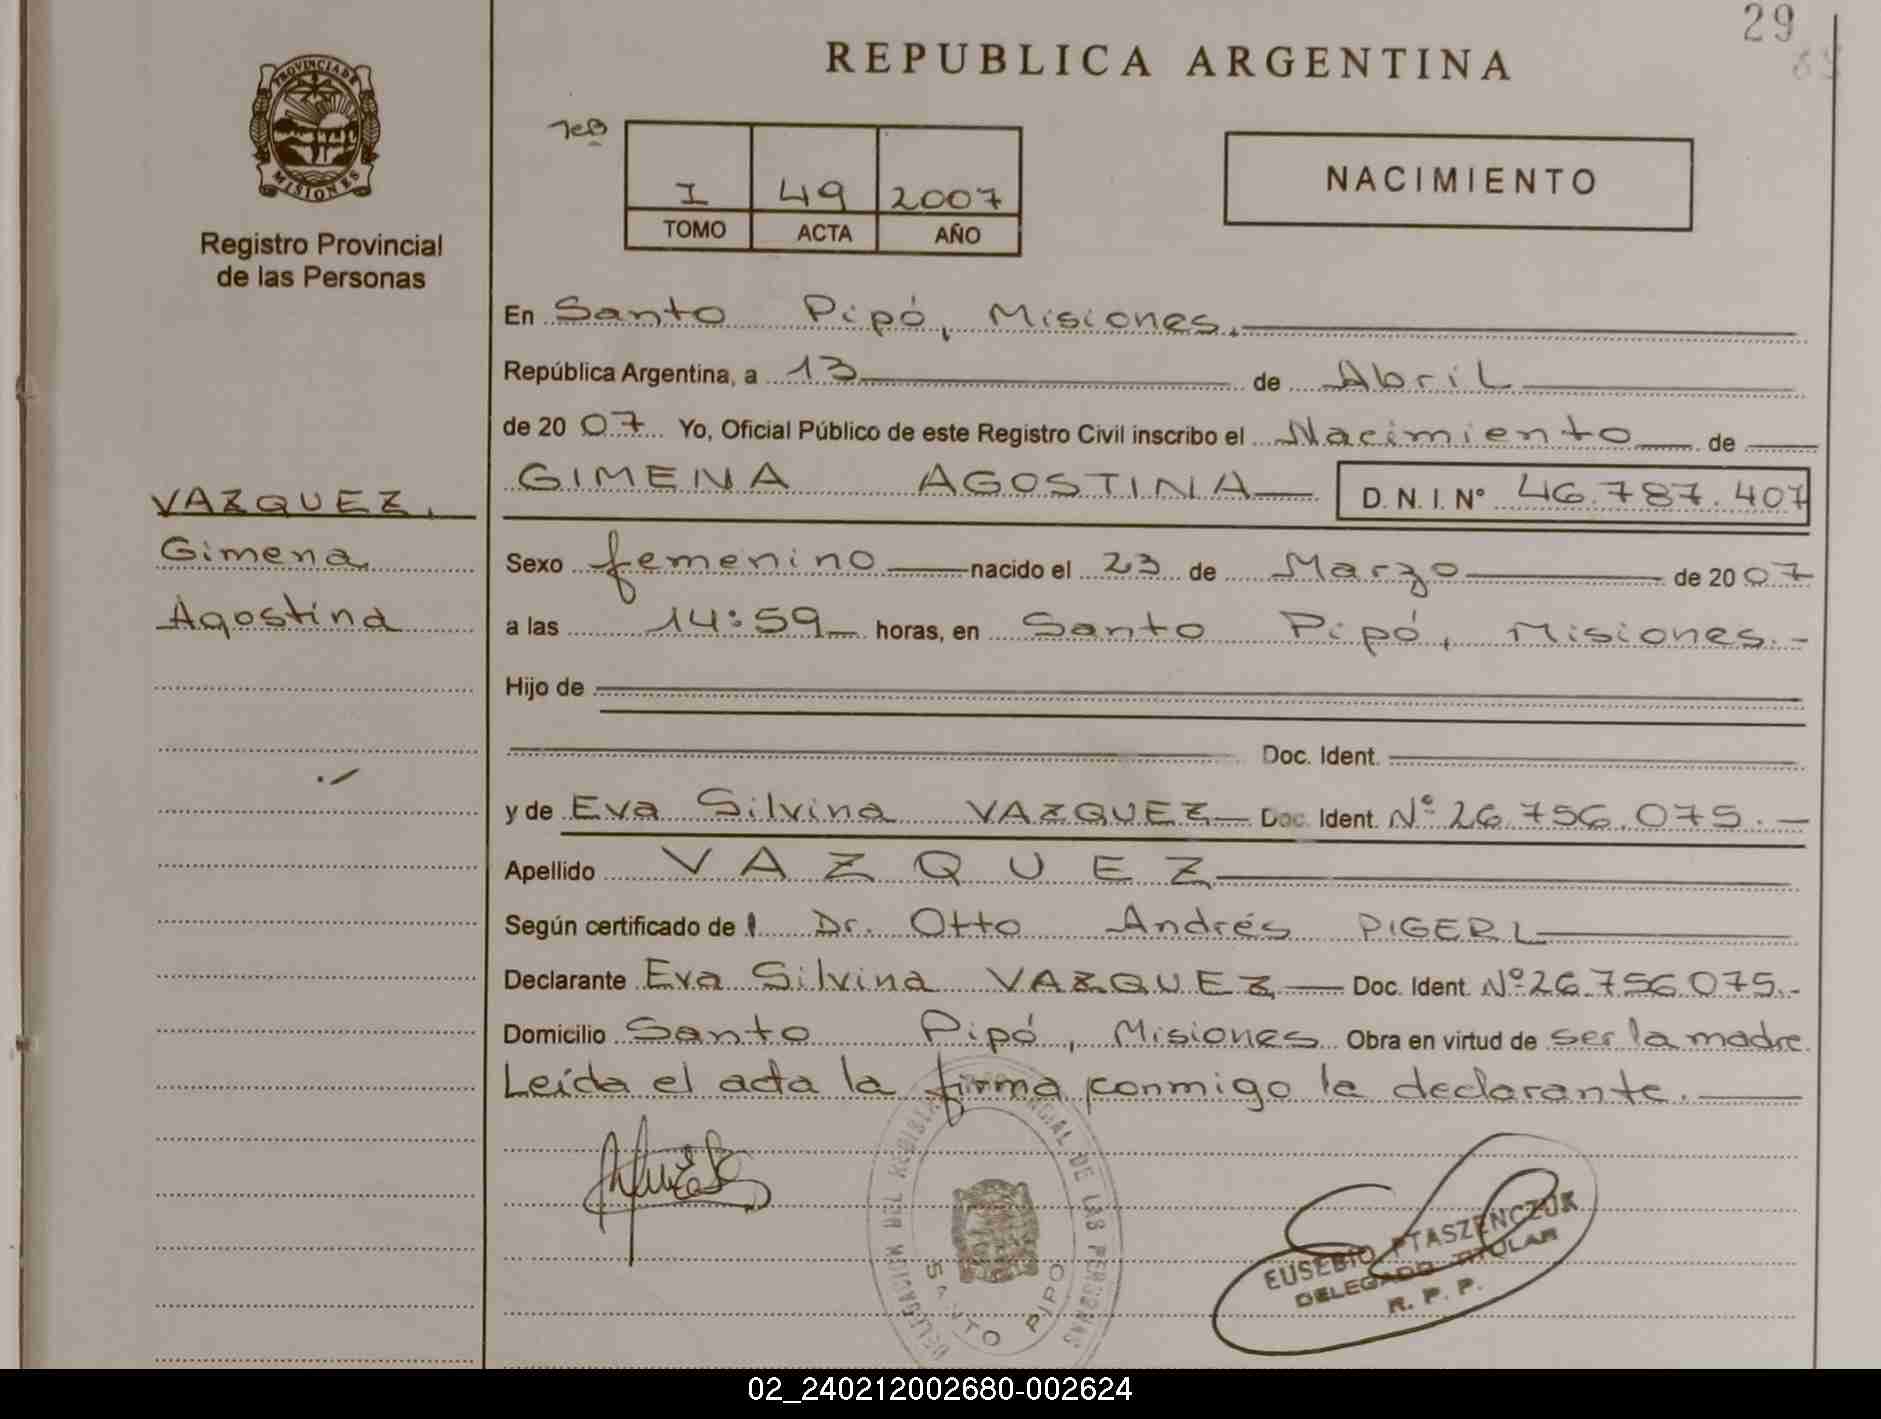 29
REPUBLICA ARGENTINA
PROVINCIA DE
MISIONES
Registro Provincial
de las Personas
I 49 2007
TOMO ACTA AÑO
NACIMIENTO
En Santo Pipó, Misiones.
República Argentina, a 13 de Abril
de 20 07 Yo, Oficial Público de este Registro Civil inscribo el Nacimiento de
GIMENA AGOSTINA D. N. I. Nº 46.787.407
VAZQUEZ,
Gimena
Agostina
Sexo femenino nacido el 23 de Marzo de 20 07
a las 14:59 horas, en Santo Pipó, Misiones.-
Hijo de
Doc. Ident.
y de Eva Silvina VAZQUEZ Doc. Ident. Nº 26.756.075.-
Apellido VAZQUEZ
Según certificado de l Dr. Otto Andrés PIGERL
Declarante Eva Silvina VAZQUEZ Doc. Ident. Nº 26.756.075.-
Domicilio Santo Pipó, Misiones Obra en virtud de ser la madre.
Leída el acta la firma conmigo la declarante.
SANTO PIPO
EUSEBIO PTASZENCZUK
DELEGADO TITULAR
R. P. P.
02_240212002680-002624